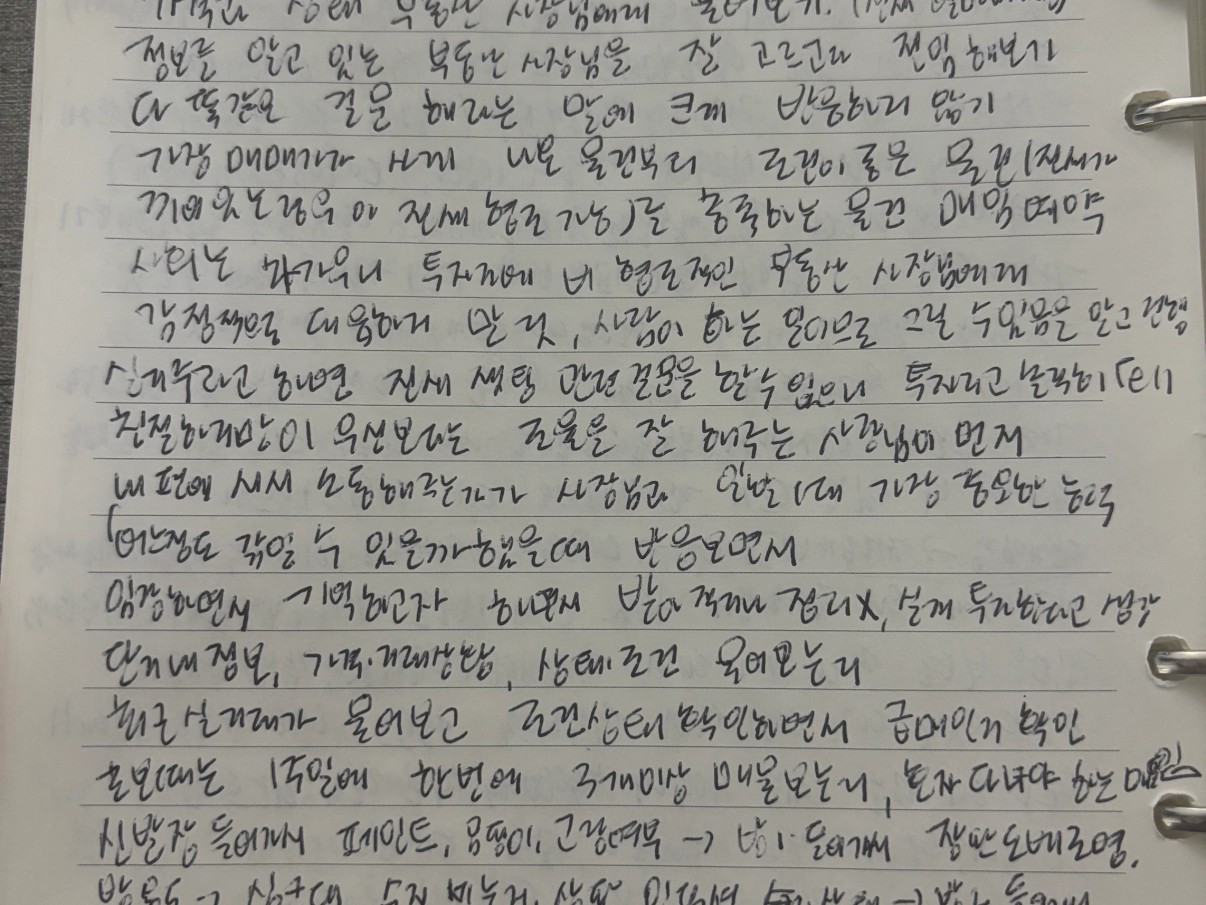 가격과 상태 부동산 사장님에게 물어보기.
정보를 알고 있는 부동산 사장님을 잘 고르고 전임해보기
다 똑같은 질문 해라는 말에 크게 반응하지 않기
가장 매매가가 싸게 나온 물건부터 조건이 좋은 물건(전세가
끼어있는경우 아 전세 협조 가능)을 충족하는 물건 매임예약
사회는 차가우니 투자자에 비 협조적인 부동산 사장님에게
감정적으로 대응하지 말 것, 사람이 하는 일이므로 그럴 수 있음을 알고 진행
실거주라고 하면 전세 셋팅 관련 질문을 할 수 없으니 투자라고 솔직히
친절하지만이 우선보다는 조율을 잘 해주는 사장님이 먼저
내 편에 서서 소통해주는가가 사장님과 일할 때 가장 중요한 능력
(어느정도 깎일 수 있을까 했을때 반응보면서
임장하면서 기억하고자 하면서 받아 적거나 정리X, 실제 투자한다고 생각
단지내 정보, 가격·거래상황, 상태·조건 물어보는지
최근 실거래가 물어보고 조건상태 확인하면서 급매인지 확인
혼보때는 1주일에 한번에 3개이상 매물보는지, 혼자 다녀야 하는
신발장 들어가서 페인트, 곰팡이, 고장여부 → 방1 들어가서 장판 도배조명.